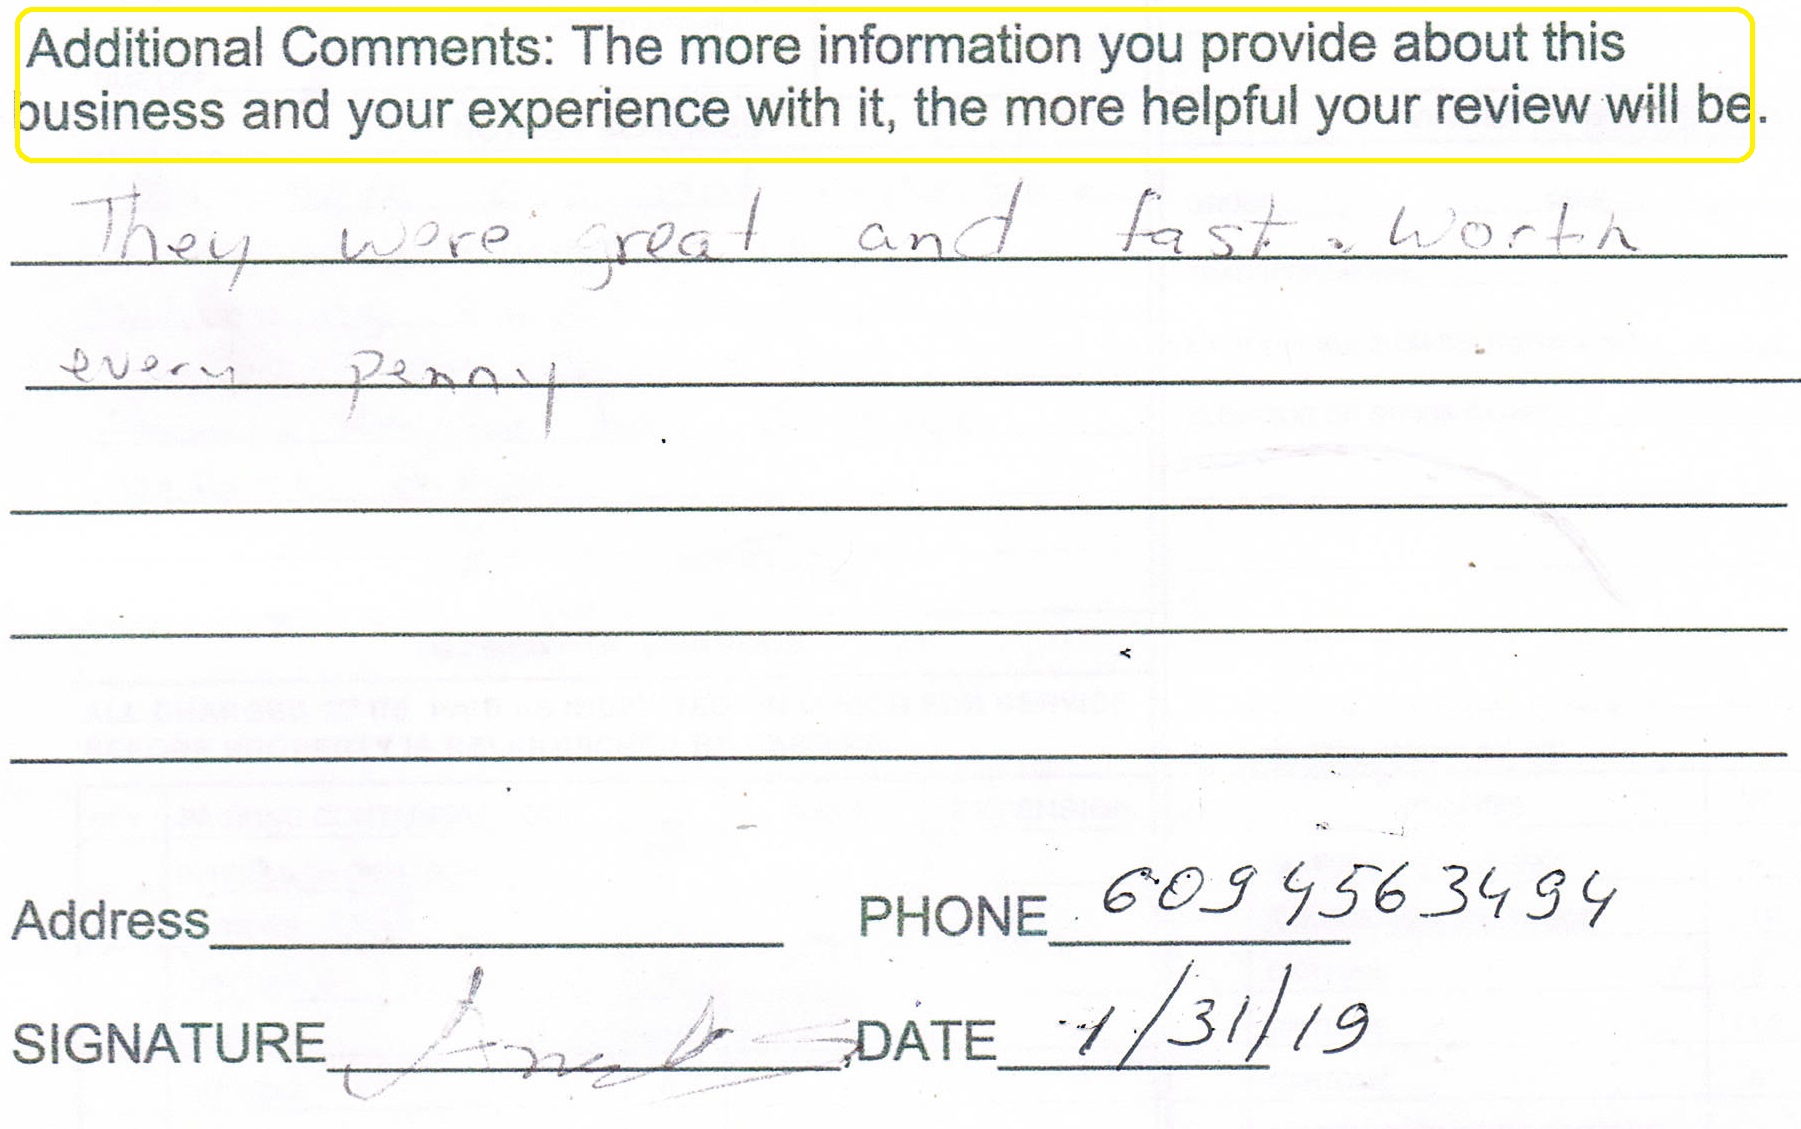 Additional Comments: The more information you provide about this
business and your experience with it, the more helpful your review will be.
They were great and fast. Worth
every penny
Address PHONE 6094563494
SIGNATURE DATE 1/31/19